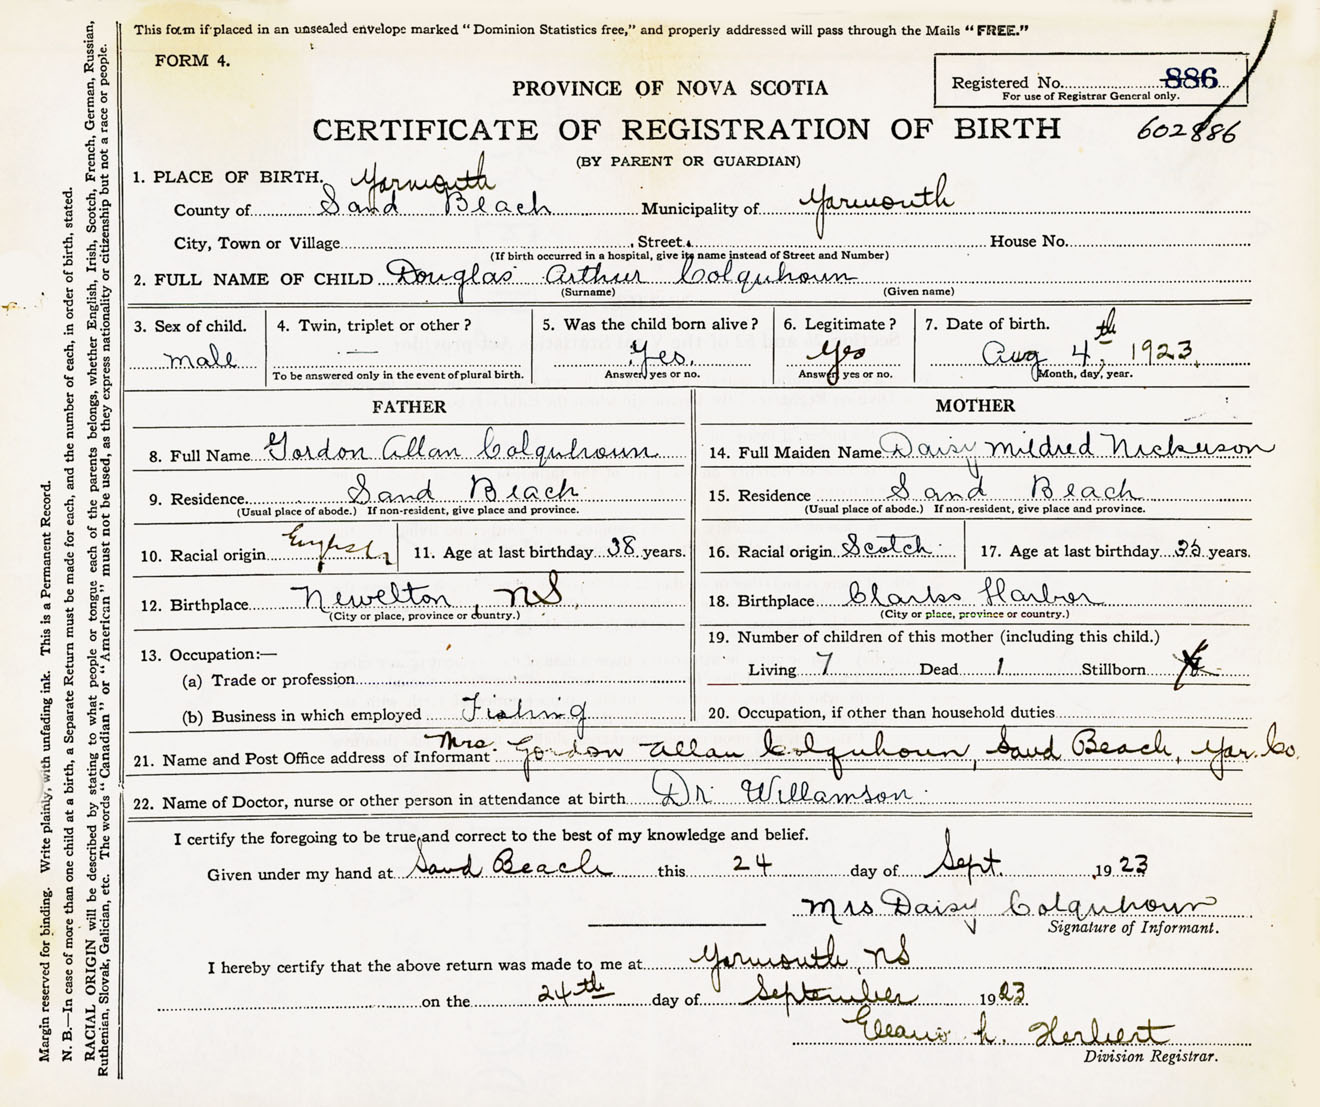 This form if placed in an unsealed envelope marked "Dominion Statistics free," and properly addressed will pass through the Mails "FREE."
FORM 4.
Registered No. 886
For use of Registrar General only.
PROVINCE OF NOVA SCOTIA
CERTIFICATE OF REGISTRATION OF BIRTH 602886
(BY PARENT OR GUARDIAN)
1. PLACE OF BIRTH. Yarmouth
County of Sand Beach Municipality of Yarmouth
City, Town or Village Street House No.
(If birth occurred in a hospital, give its name instead of Street and Number)
2. FULL NAME OF CHILD Douglas Arthur Colquhoun
(Surname) (Given name)
3. Sex of child. male
4. Twin, triplet or other? —
To be answered only in the event of plural birth.
5. Was the child born alive? Yes.
Answer yes or no.
6. Legitimate? Yes
Answer yes or no.
7. Date of birth. Aug 4th, 1923.
Month, day, year.
FATHER
8. Full Name Gordon Allan Colquhoun
9. Residence Sand Beach
(Usual place of abode.) If non-resident, give place and province.
10. Racial origin English 11. Age at last birthday 38 years.
12. Birthplace Newelton, NS.
(City or place, province or country.)
13. Occupation:—
(a) Trade or profession
(b) Business in which employed Fishing
MOTHER
14. Full Maiden Name Daisy Mildred Nickerson
15. Residence Sand Beach
(Usual place of abode.) If non-resident, give place and province.
16. Racial origin Scotch 17. Age at last birthday years.
18. Birthplace Clarks Harbor
(City or place, province or country.)
19. Number of children of this mother (including this child.)
Living 7 Dead 1 Stillborn
20. Occupation, if other than household duties
21. Name and Post Office address of Informant Mrs. Gordon Allan Colquhoun, Sand Beach, Yar. Co.
22. Name of Doctor, nurse or other person in attendance at birth Dr Willamson
I certify the foregoing to be true and correct to the best of my knowledge and belief.
Given under my hand at Sand Beach this 24 day of Sept. 1923
Mrs Daisy Colquhoun
Signature of Informant.
I hereby certify that the above return was made to me at Yarmouth, NS
on the 24th day of September 1923.
L. Herbert
Division Registrar.
Margin reserved for binding. Write plainly, with unfading ink. This is a Permanent Record.
N. B.—In case of more than one child at a birth, a Separate Return must be made for each, and the number of each, in order of birth, stated.
RACIAL ORIGIN will be described by stating to what people or tongue each of the parents belongs, whether English, Irish, Scotch, French, German, Russian,
Ruthenian, Slovak, Galician, etc. The words "Canadian" or "American" must not be used, as they express nationality or citizenship but not a race or people.